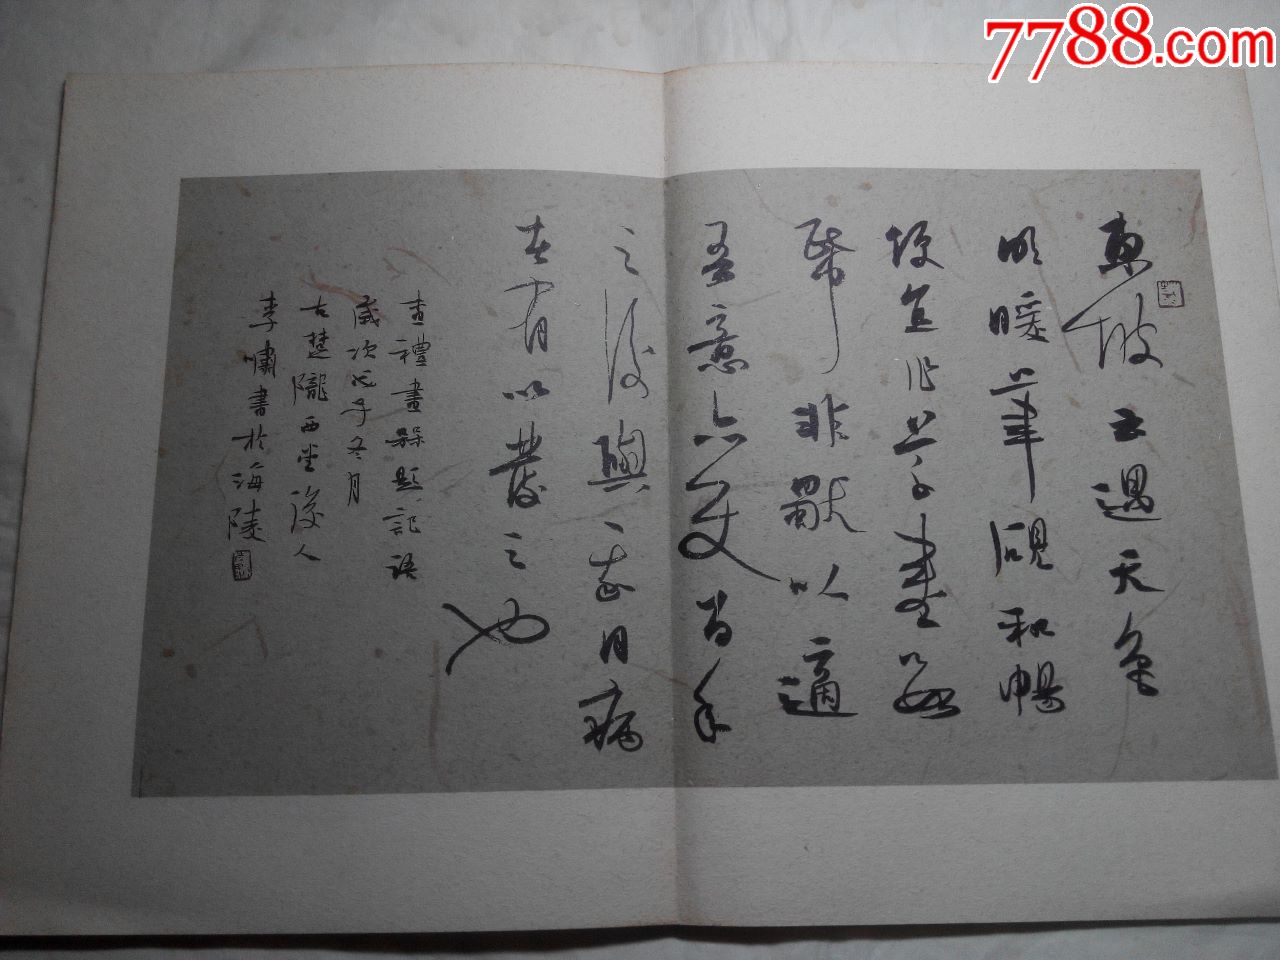 7788.com
東坡云遇天色
明暖筆硯和暢
便宜作草書數
帋非獨以適
吾意亦使百年
之後與我同病
者有以發之也
查禮畫槑題記語
歲次戊子冬月
古楚隴西堂後人
李嘯書於海陵